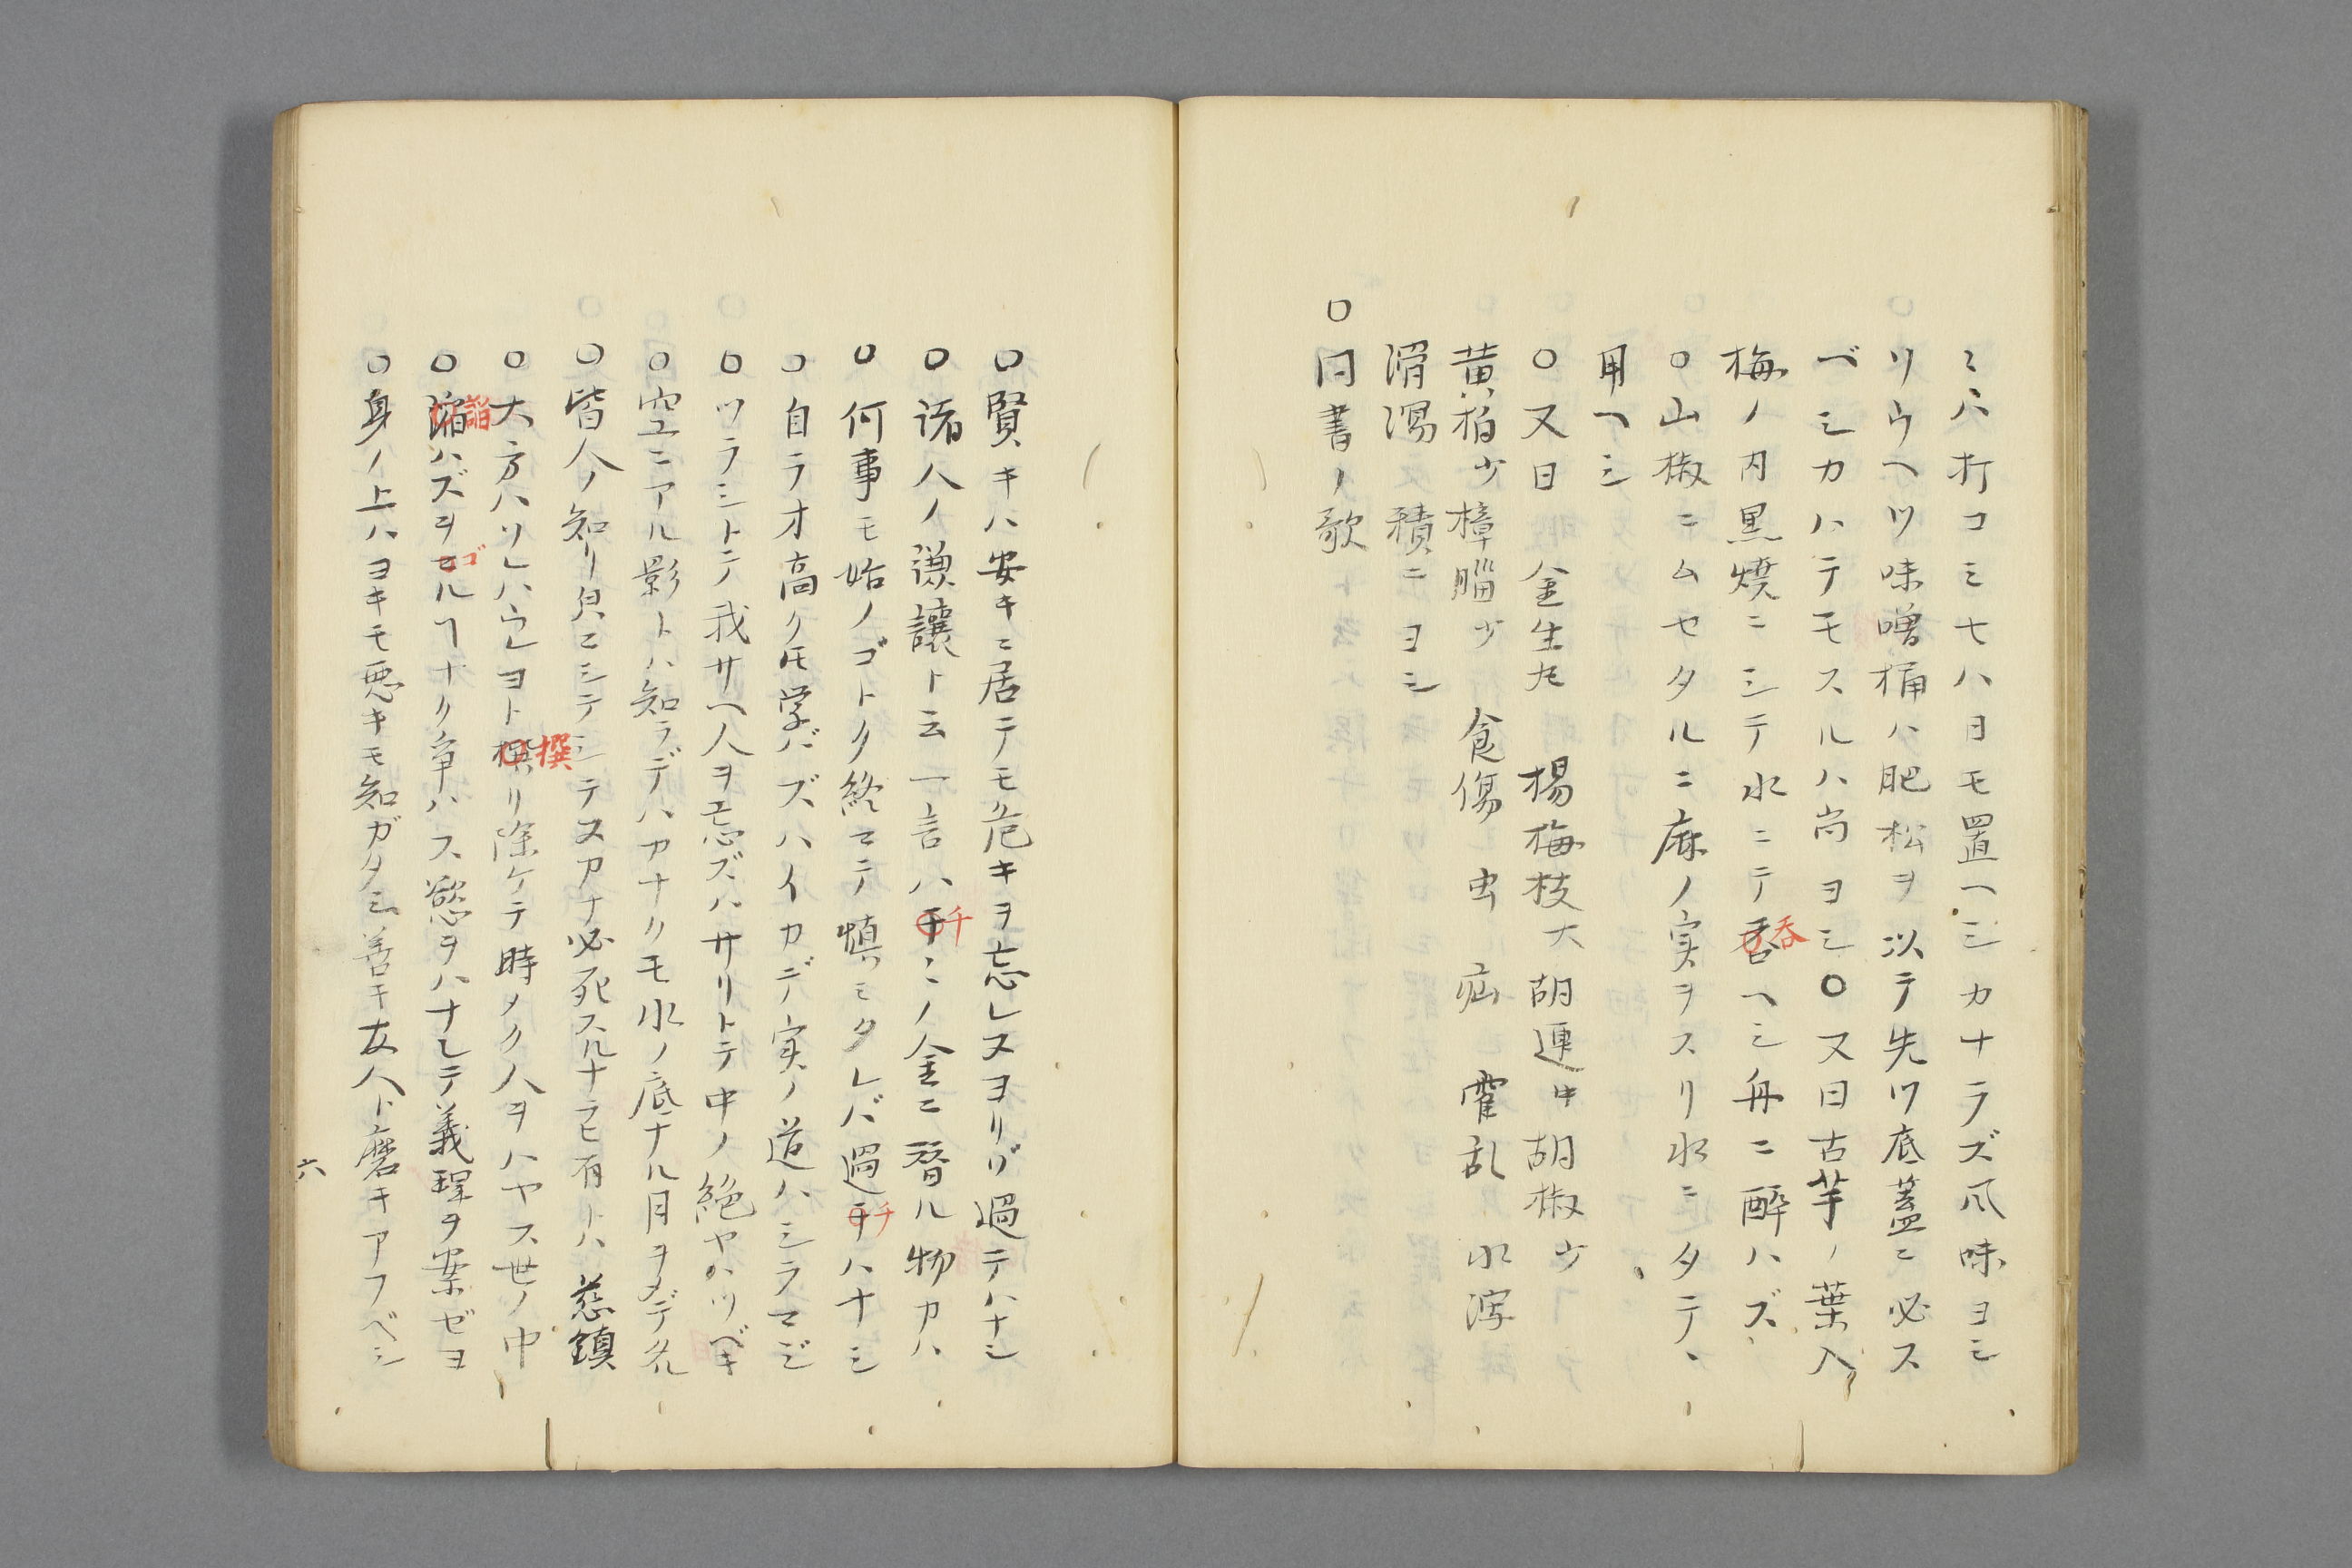 ミ六打コミ七八日モ置ヘシカナラズ風味ヨシ
リウヘツ味噌桶ハ肥松ヲ以テ先ツ底蓋ニ必ス
ベシカハテモスルハ尚ヨシ○又曰古芋ノ葉入
梅ノ内黒焼ニシテ水ニテ呑ヘシ舟ニ酔ハズ
○山椒ニムセタルニ麻ノ実ヲスリ水ニタテヽ
用ヘシ
○又曰 金生丸 楊梅枝大 胡連中 胡椒少
黄栢少 樟腦少 食傷 虫 疝 霍乱 水瀉
滑瀉 積ニヨシ
○同書ノ歌
○賢キハ安キニ居テモ危キヲ忘レヌヨリゾ過テハナシ
○諸人ノ謙譲ト云一言ハ千ヾノ金ニ替ル物カハ
○何事モ始ノゴトク終マテ慎ミタレバ過チハナシ
○自ラオ高ク𪜈学バズハイカデ実ノ道ハシラマジ
○ツラシトテ我サヘ人ヲ忘ズハサリトテ中ノ絶ヤハツベキ
○空ニアル影トハ知ラデハカナクモ水ノ底ナル月ヲメデタル
○皆人ノ知リ皃ニシテシテヌカナ必死スルナラヒ有トハ 慈鎮
○大方ハソレハウレヨト撰リ除ケテ時メク人ヲハヤス世ノ中
○諂ハズヲゴルヿナク争ハス慾ヲハナレテ義理ヲ案ゼヨ
○身ノ上ハヨキモ悪キモ知ガタシ善キ友人ト磨キアフベシ
六